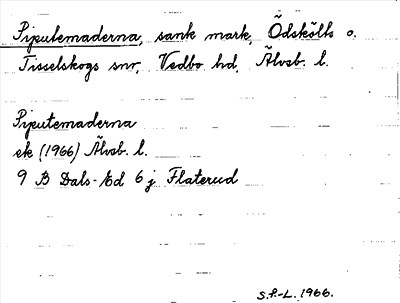 Pipulemaderna, sank mark, Ödskölts o.
Tisselskogs snr, Vedbo hd, Älvsb. l.
Piputemaderna
ek (1966) Älvsb. l.
9 B Dals-Ed 6 j Flaterud
S.F.-L. 1966.